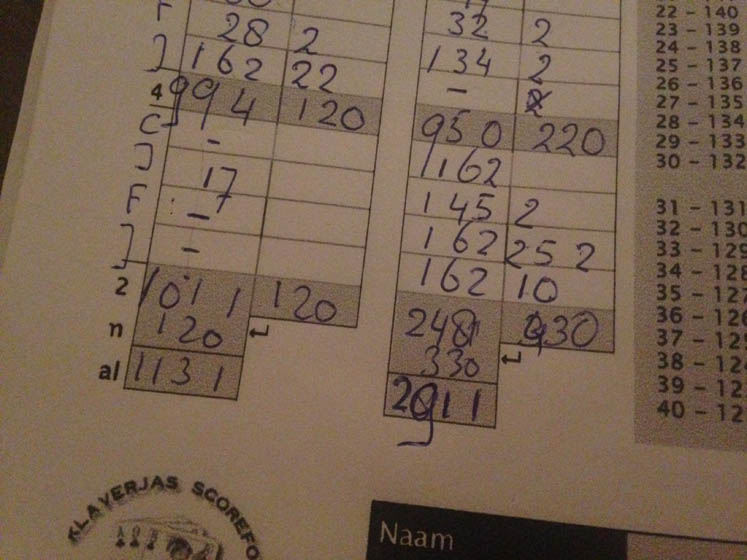 28 2 32 2
162 22 134 2
4 994 120 -
C - 950 220
J 17 162
F - 145 2
J - 162 25 2
162 10
2 1011 120
n 120 ↵ 2481
330 ↵
al 1131
2911
22 - 140
23 - 139
24 - 138
25 - 137
26 - 136
27 - 135
28 - 134
29 - 133
30 - 132
31 - 131
32 - 130
33 - 129
34 - 128
35 - 12
36 - 12
37 - 12
38 - 12
39 - 12
40 - 12
KLAVERJAS SCOREFO
Naam